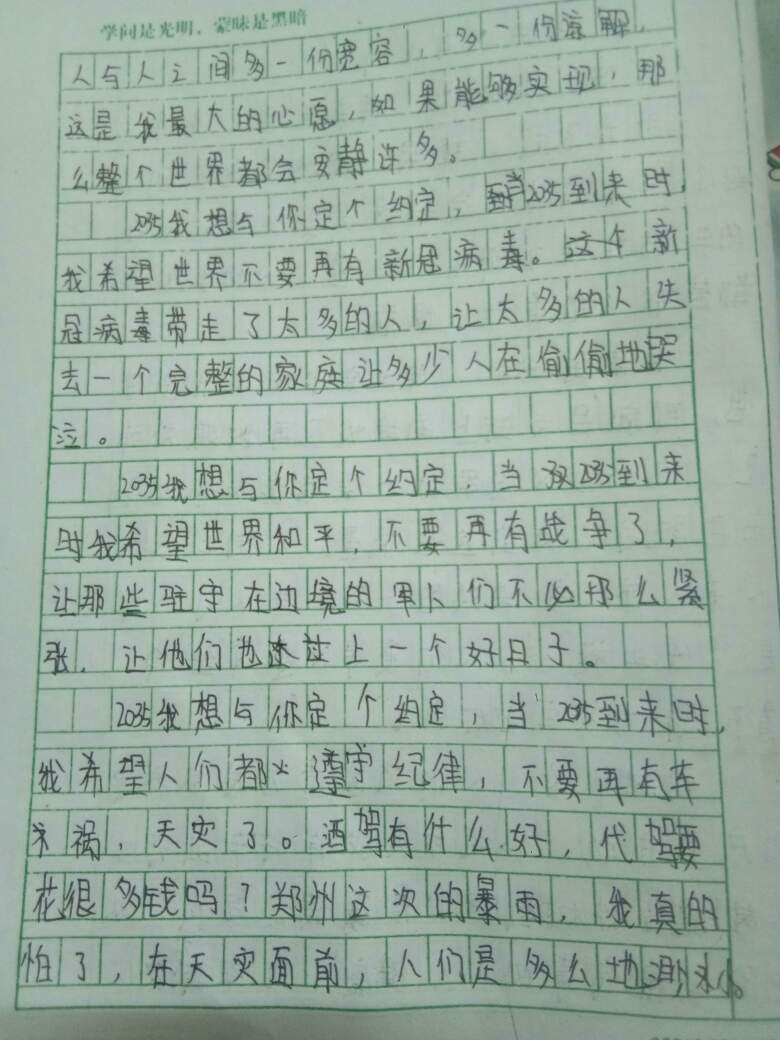 学问是光明，蒙昧是黑暗
人与人之间多一份宽容，多一份谅解，
这是我最大的心愿，如果能够实现，那
么整个世界都会安静许多。
2035我想与你定个约定，当2035到来时，
我希望世界不要再有新冠病毒。这个新
冠病毒带走了太多的人，让太多的人失
去一个完整的家庭让多少人在偷偷地哭
泣。
2035我想与你定个约定，当2035到来
时我希望世界和平，不要再有战争了，
让那些驻守在边境的军人们不必那么紧
张，让他们也过上一个好日子。
2035我想与你定个约定，当2035到来时，
我希望人们都遵守纪律，不要再有车
祸，天灾了。酒驾有什么好，代驾要
花很多钱吗？郑州这次的暴雨，我真的
怕了，在天灾面前，人们是多么地渺小。